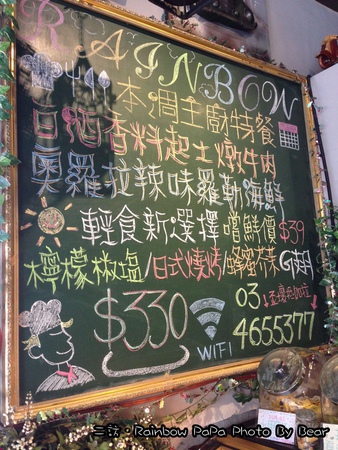 RAINBOW
本週主廚特餐
白酒香料起士燉牛肉
奧羅拉辣味羅勒海鮮
輕食新選擇 嚐鮮價 $39
檸檬椒塩/日式燒烤/蜂蜜芥茉
$330
WIFI
03
4655377
二訪·Rainbow PaPa Photo By Bear